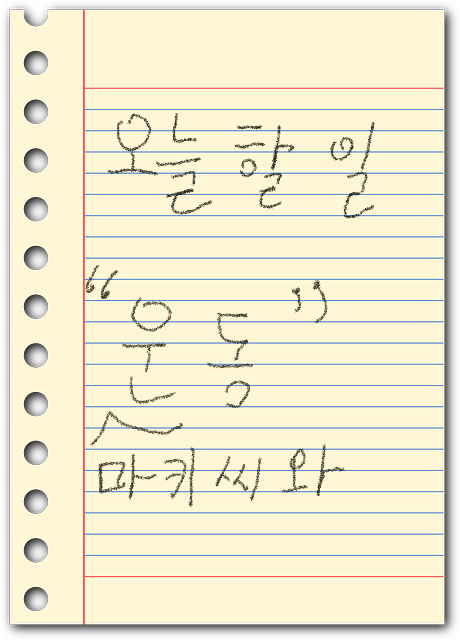 오늘 할 일
“운동”
마키씨와